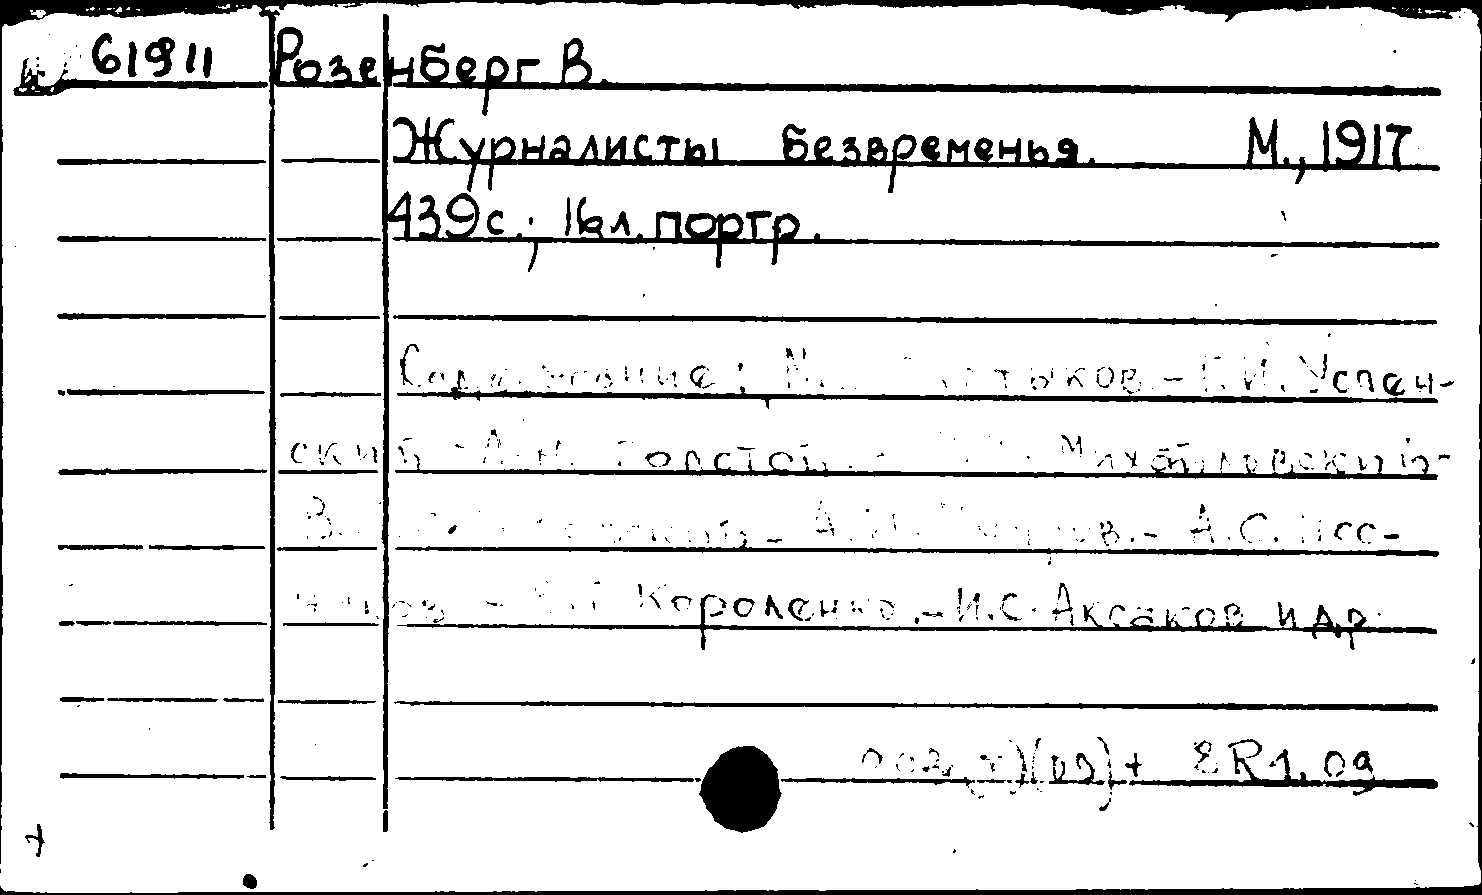 61911 Розенберг В.
Журналисты безвременья. М., 1917
439 с.; 16 л. портр.
Содержание: М. Салтыков. - Г.И. Успен-
ский - Толстой. - Михайловский-
А.И. - А.С. Пос-
ников - Короленко. - И.С. Аксаков и др.
(09) + 2R1.09